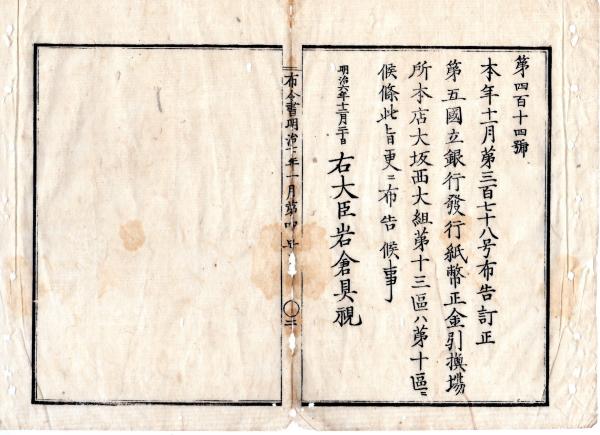 第四百十四號
本年十一月第三百七十八号布告訂正
第五國立銀行發行紙幣正金引換場
所本店大坂西大組第十三區ハ第十區ニ
候條此旨更ニ布告候事
明治六年十二月二十日
右大臣岩倉具視
布令書明治 年一月第四